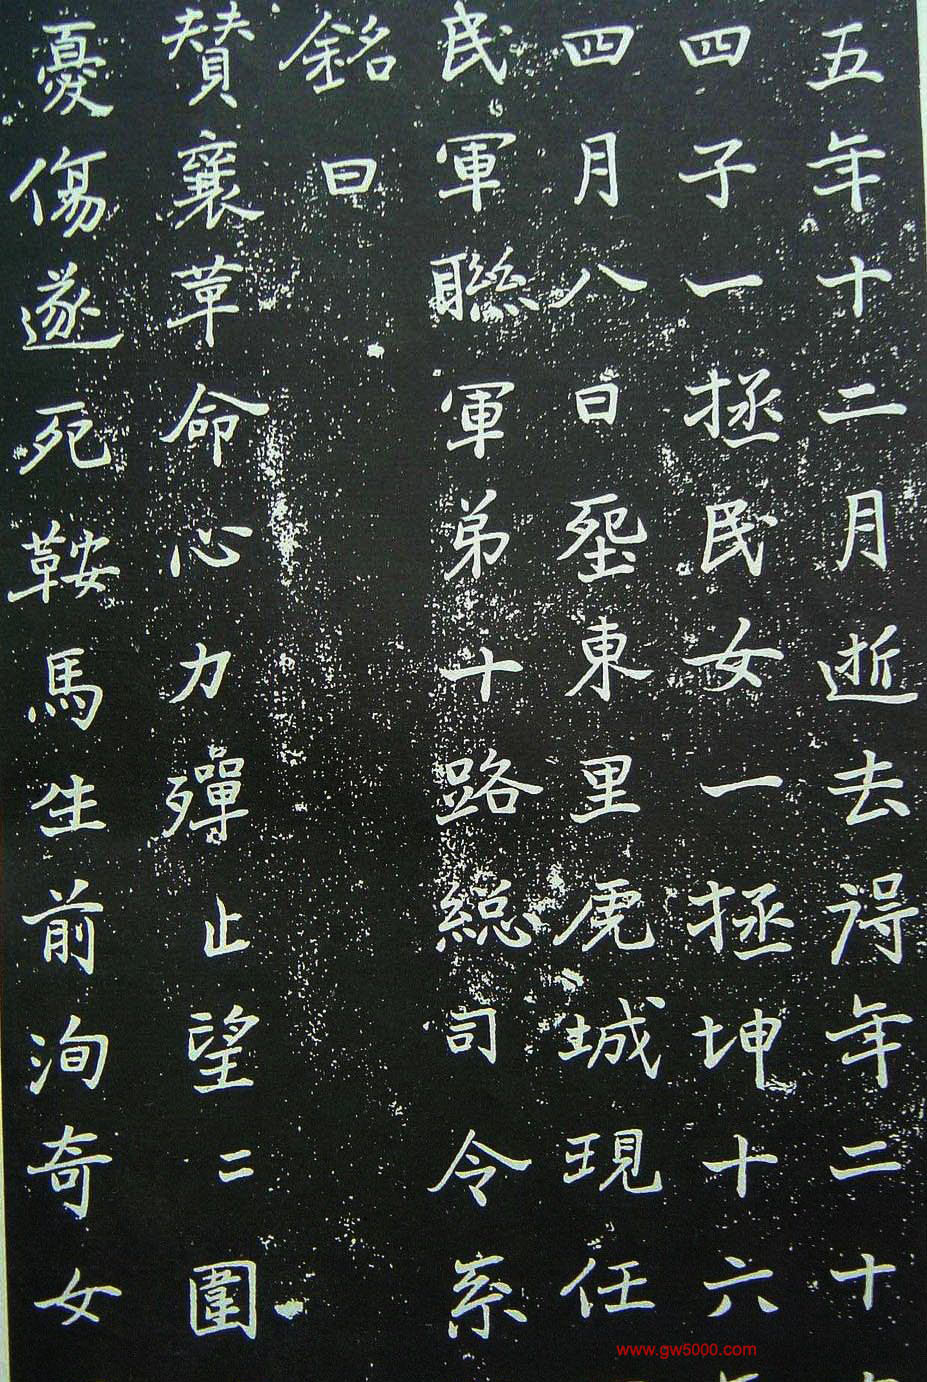 五年十二月逝去得年二十
四子一拯民女一拯坤十六
四月八日塟東里虎城現任
民軍聯軍弟十路緫司令系
銘曰
賛襄革命心力殫止望二圍
憂傷遂死鞍馬生前洵奇女
www.gw5000.com